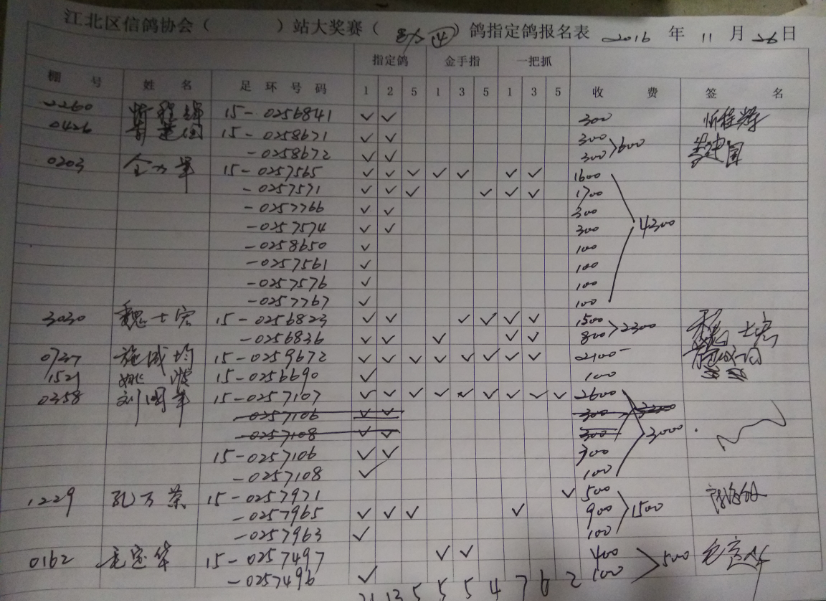 江北区信鸽协会（ ）站大奖赛（ ④）鸽指定鸽报名表 2016 年 11 月 26 日
指定鸽 金手指 一把抓
棚 号 姓 名 足 环 号 码 1 2 5 1 3 5 1 3 5 收 费 签 名
2260 15-0256841 ✓ ✓ 300
0426 15-0258671 ✓ ✓ 300
-0258672 ✓ ✓ 300 >600
0203 15-0257565 ✓ ✓ ✓ ✓ ✓ ✓ ✓ 1600
-0257571 ✓ ✓ ✓ ✓ ✓ ✓ 1700
-0257766 ✓ ✓ 300
-0257574 ✓ ✓ 300 4300
-0258650 ✓ 100
-0257561 ✓ 100
-0257576 ✓ 100
-0257767 ✓ 100
3030 魏士宏 15-0256823 ✓ ✓ ✓ ✓ ✓ ✓ 1500
-0256836 ✓ ✓ ✓ ✓ ✓ 800 >2300
0737 施成均 15-0259672 ✓ ✓ ✓ ✓ ✓ ✓ ✓ ✓ 2100
1521 姚 15-0256690 ✓ 100
0358 刘国华 15-0257107 ✓ ✓ ✓ ✓ ✓ ✓ ✓ ✓ ✓ 2600
-0257106 ✓ ✓ 300
-0257108 ✓ ✓ 300 3000
15-0257106 ✓ ✓ 300
-0257108 ✓ 100
1229 孔万荣 15-0257971 ✓ 500
-0257965 ✓ ✓ ✓ ✓ 900 1500
-0257963 ✓ 100
0162 毛宝华 15-0257497 ✓ ✓ 400
-0257496 ✓ 100 >500
21 13 5 5 5 4 7 6 2